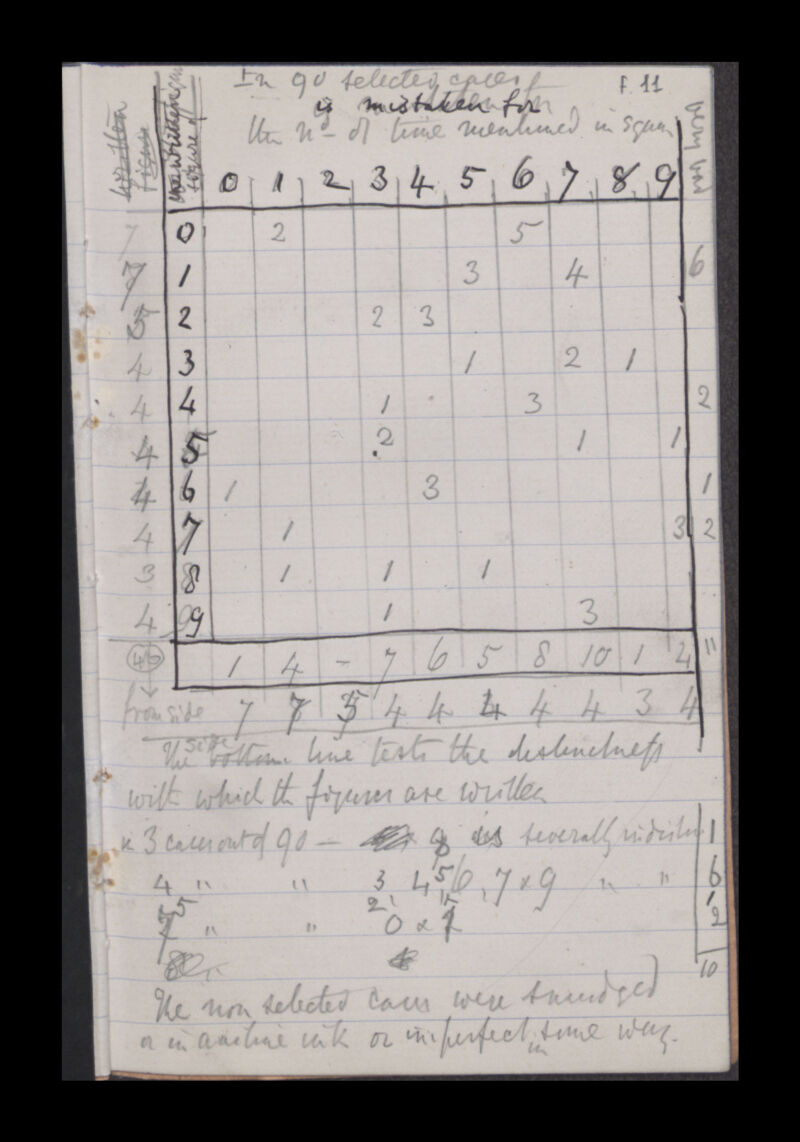 In 90 selected cases of
is mistaken for
the nº of time mentioned in squar
F. 11
very bad
written figure
figure of
0 1 2 3 4 5 6 7 8 9
7 0 2 5
7 1 3 4 6
5 2 2 3
4 3 1 2 1
4 4 1 3 2
4 5 2 1 1
4 6 1 3 1
4 7 1 3 2
3 8 1 1 1
4 9 1 3
46 1 4 - 7 6 5 8 10 1 4 "
from side 7 7 5 4 4 4 4 4 3 4
side
The bottom line tests the distinctness
with which the figures are written
n 3 cases out of 90 — 8 is severally indistin 1
4 " " 3 4 5 6, 7 & 9 " " 6
5 " " 2 0 & 1 2
10
The non selected cases were smudged
or in aniline ink or imperfect in some way.